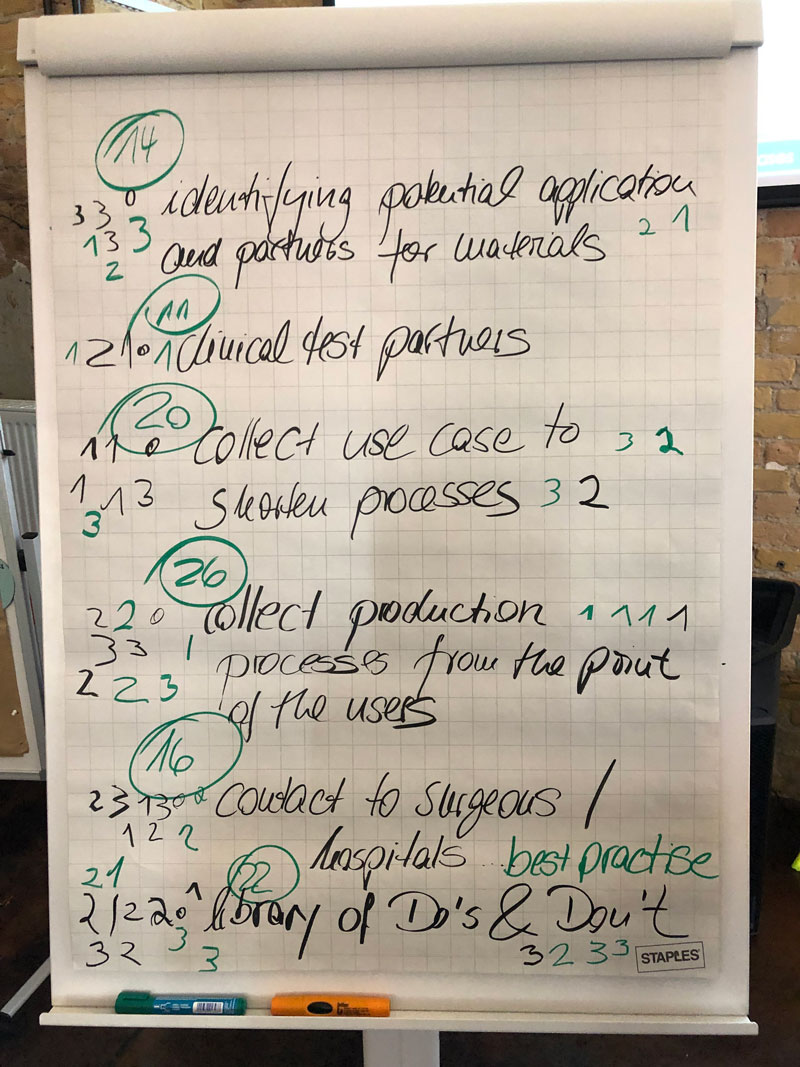 14
3 3 o identifying potential application
1 3 3 and partners for materials 2 1
2
11
1 2 1 o 1 clinical test partners
20
1 1 o collect use case to 3 2
1 1 3 shorten processes 3 2
3
26
2 2 o collect production 1 1 1 1
3 3 1 processes from the point
2 2 3 of the users
16
2 3 1 3 o o contact to surgeons /
1 2 2 hospitals ... best practise
2 1 22
2 1 2 2 o 1 library of Do's & Don't
3 2 3 3 3 2 3 3 STAPLES